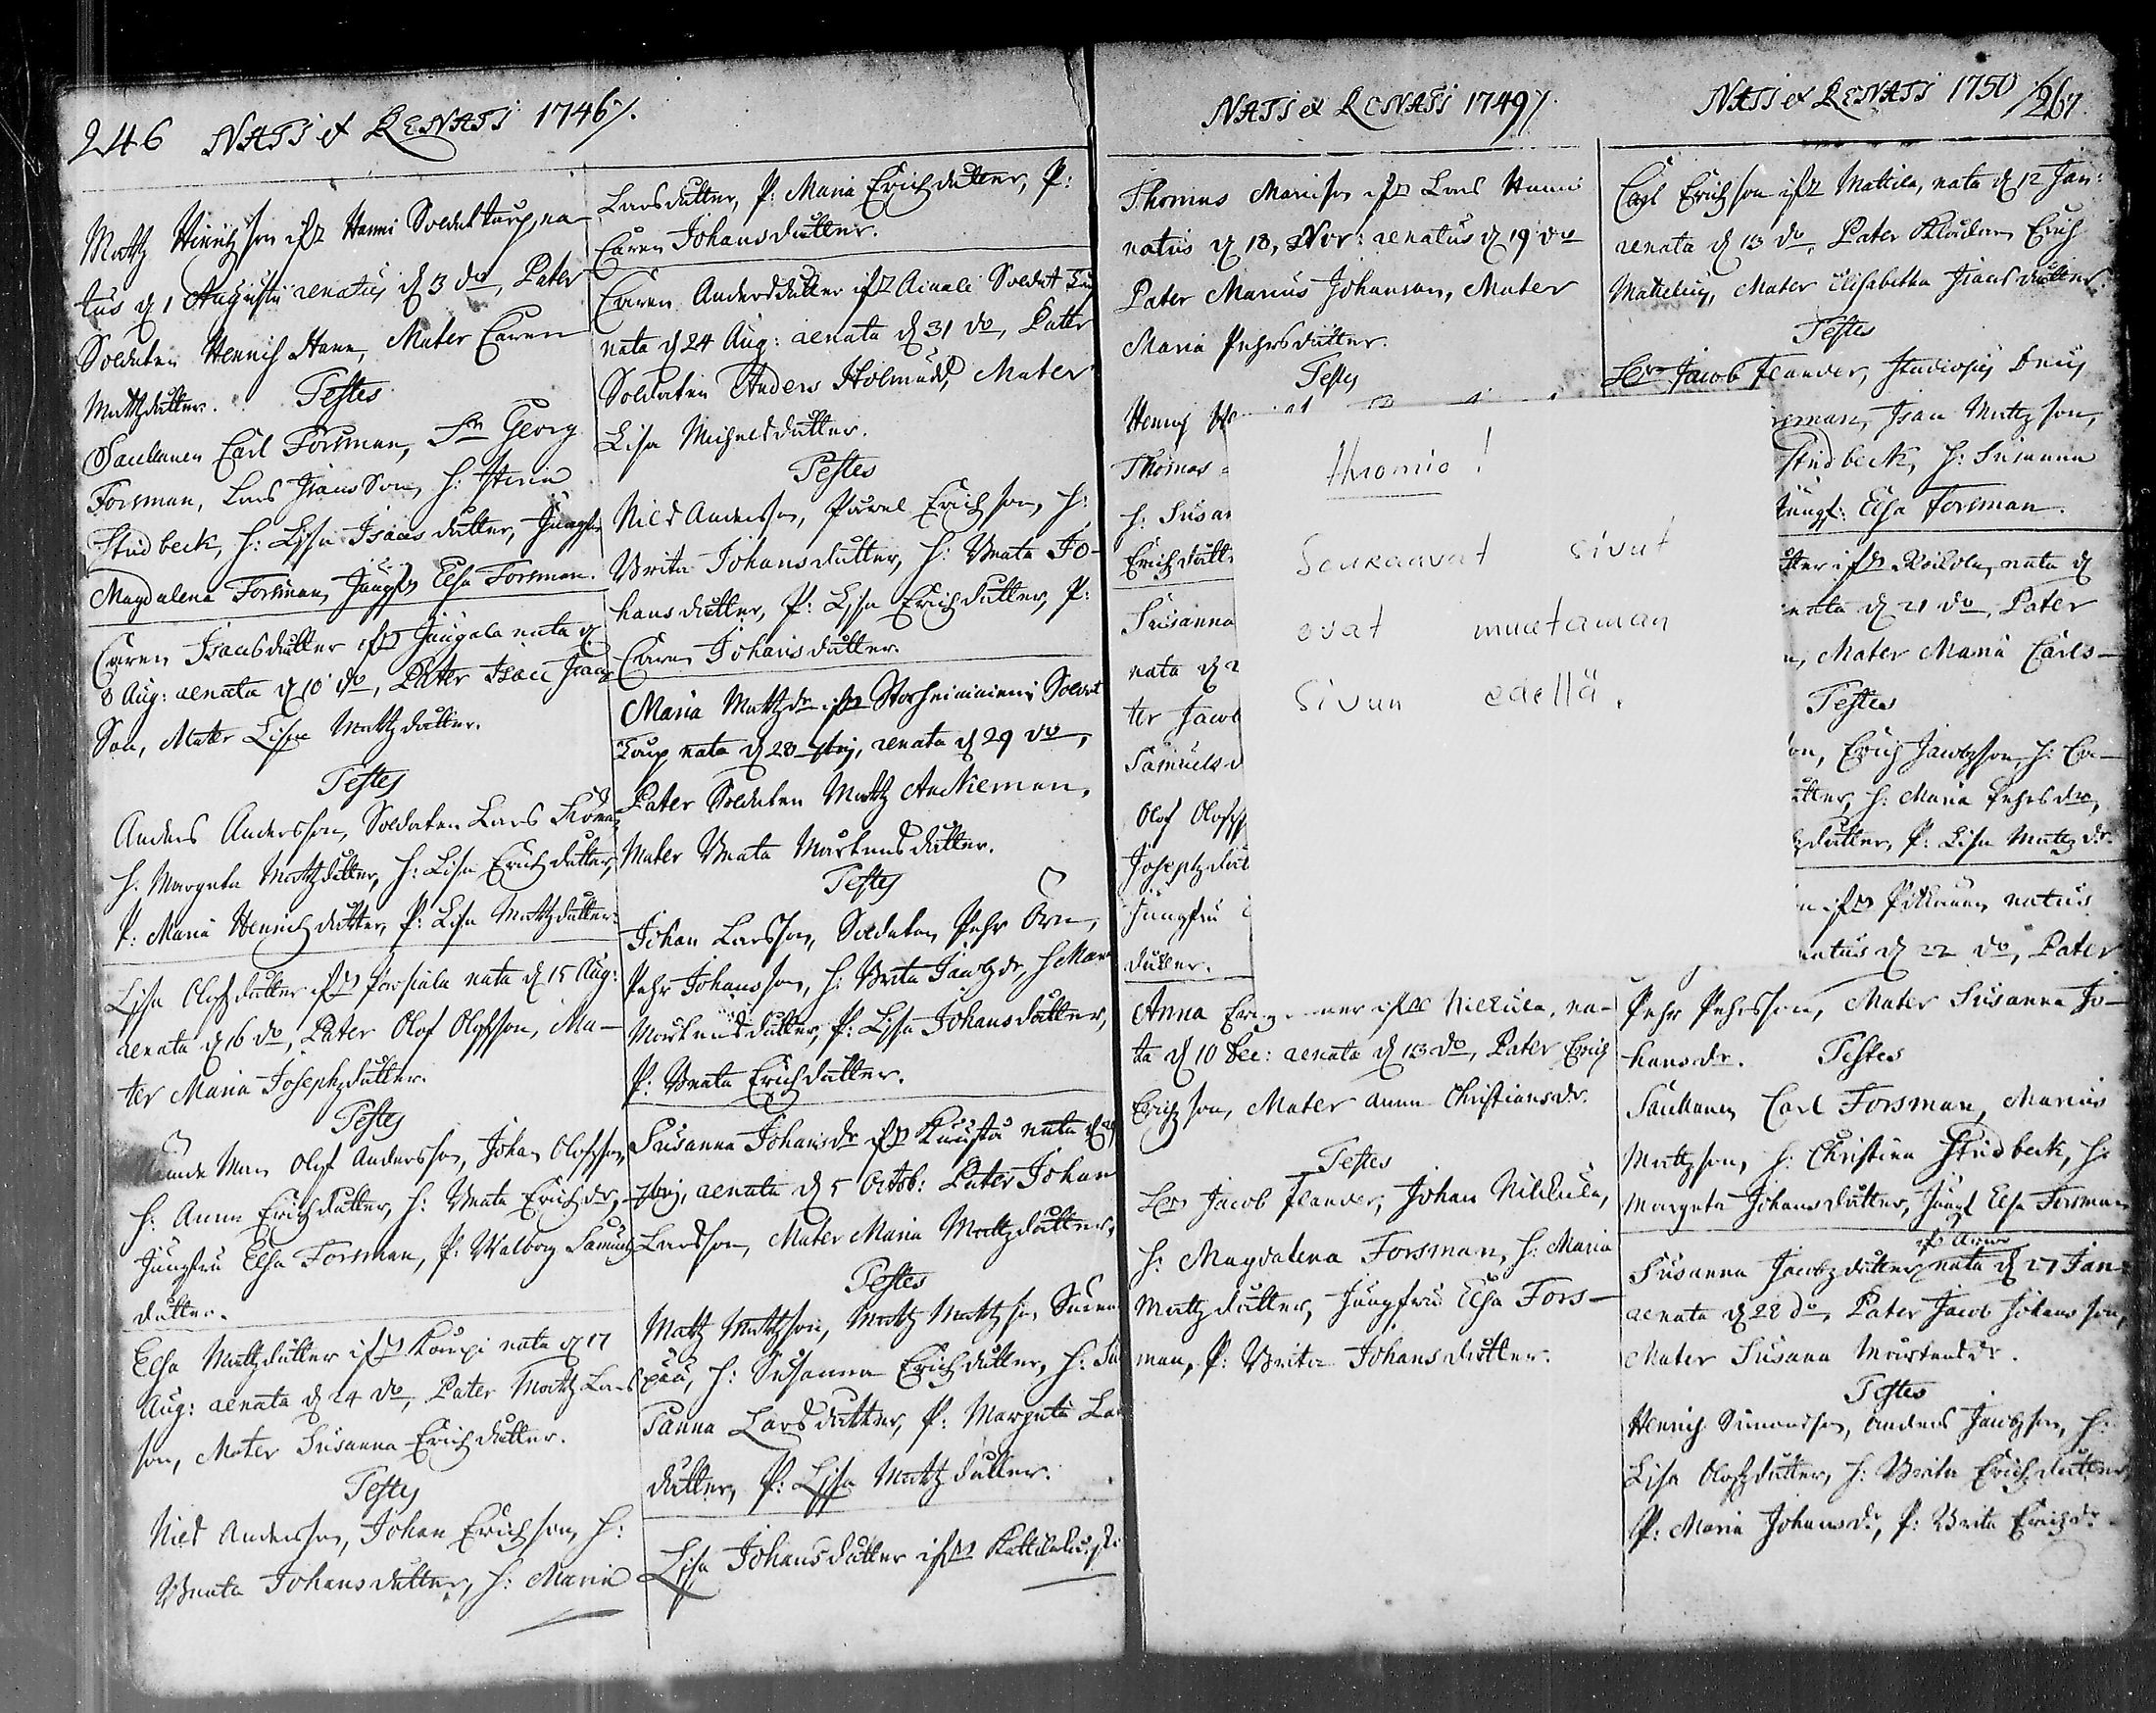 246 NATI et RENATI 1746
Mattz Hinrichson ifr. Hanni Soldat torp, na-
tus d. 1 Augusti renatus d. 3 do, Pater
Soldaten Henrich Hane, Mater Caren
Mattzdutter. Testes
Carl Forsman, Georg
Forsman, Lars Isaacsson, h: Stina
Studbeck, h: Lisa Isaacsdutter, Jungfr
Magdalena Forsman, Jungfr Elsa Forsman.
Caren Isaacsdutter ifr. Jaugala nata d.
8 Aug: renata d. 10 do, Pater Isaac Isaacs
Son, Mater Lisa Mattzdutter.
Testes
Anders Andersson, Soldaten Lars
h. Margeta Mattzdutter, h: Lisa Erichdutter,
P: Maria Henrichdutter, P: Lisa Mattzdutter.
Lisa Olofsdutter ifr. nata d. 15 Aug:
renata d. 16 do, Pater Olof Olofsson, Ma-
ter Maria Josephzdutter.
Testes
Olof Andersson, Johan Olofsson,
h: Anna Erichdutter, h: Beata Erichdr,
Jungfru Elsa Forsman, P: Walborg Samuels
dutter.
Elsa Mattzdutter ifr. Koupi nata d. 17
Aug: renata d. 24 do, Pater Mattz Lars
son, Mater Susanna Erichdutter.
Testes
Nils Andersson, Johan Erichson, h:
Beata Johansdutter, h: Maria
Larsdutter, P: Maria Erichdutter, P:
Caren Johansdutter.
Caren Andersdutter ifr. Soldat
nata d. 24 Aug: renata d. 31 do, Pater
Soldaten Anders Holmudd, Mater
Lisa Michelsdutter.
Testes
Nils Andersson, Påvel Erichson, h:
Brita Johansdutter, h: Beata Jo-
hansdutter, P: Lisa Erichdutter, P:
Caren Johansdutter.
Maria Mattzdr ifr. Storheinniemi Soldat
Torp nata d. 28 renata d. 29 do,
Pater Soldaten Mattz Ankieman,
Mater Beata Mårtensdutter.
Testes
Johan Larsson, Soldaten Pehr Örn,
Pehr Johansson, h: Brita Jacobzdr, h Mar
Mårtensdutter, P: Lisa Johansdutter,
P: Beata Erichdutter.
Susanna Johansdr ifr. Knuusta nata d.
7bris, renata d. 5 Octob: Pater Johan
Larsson, Mater Maria Mattzdutter,
Testes
Mattz Mattzson, Mattz Mattzson
h: Susanna Erichdutter, h: Su
sanna Larsdutter, P: Margeta La
dutter, P: Lisa Mattzdutter.
Lisa Johansdutter ifr.
NATI et RENATI 1749
Thomas Mariuson ifr. Lars Hanni
natus d. 18, Nov: renatus d. 19 do
Pater Marius Johanson, Mater
Maria Pehrsdutter.
Testes
Henrich
Thomas
h: Susan
Erichdutt
Susanna
nata d. 2
ter Jacob
Samuels
Olof Olofss
Josephzdut
Jungfru
dutter.
Anna ifr. Nickula, na-
ta d. 10 Dec: renata d. 13 do, Pater Erich
Erichson, Mater Anna Christiansdr.
Testes
Jacob Flander, Johan Nikkula,
h: Magdalena Forsman, h: Maria
Mattzdutter, Jungfru Elsa Fors-
man, P: Brita Johansdutter.
Huomio!
Seuraavat sivut
ovat muutaman
sivun edellä.
NATI et RENATI 1750 267
Carl Erichson ifr. Mattila, nata d. 12 Jan:
renata d. 13 do, Pater Erich
Mattelius, Mater Elisabetha Isaacsdutter.
Testes
Jacob Flander, Studiosus
rsman, Isaac Mattzson,
Studbeck, h: Susanna
Jungf: Elsa Forsman.
tter ifr. nata d.
nata d. 21 do, Pater
n, Mater Maria Carls-
Testes
on, Erich Jacobsson, h: Ca-
utter, h: Maria Pehrsdr,
zdutter, P: Lisa Mattzdr.
n ifr. natus
natus d. 22 do, Pater
Pehr Pehrsson, Mater Susanna Jo-
hansdr. Testes
Carl Forsman, Marius
Mattzson, h: Christina Studbeck, h:
Margeta Johansdutter, Jungf Elsa Forsman
Susanna Jacobzdutter nata d. 27 Jan:
renata d. 28 do, Pater Jacob Johansson,
Mater Susana Mårtensdr.
Testes
Henrich Simonsson, Anders Jacobzson, h:
Lisa Olofsdutter, h: Brita Erichdutter,
P: Maria Johansdr, P: Brita Erichdr